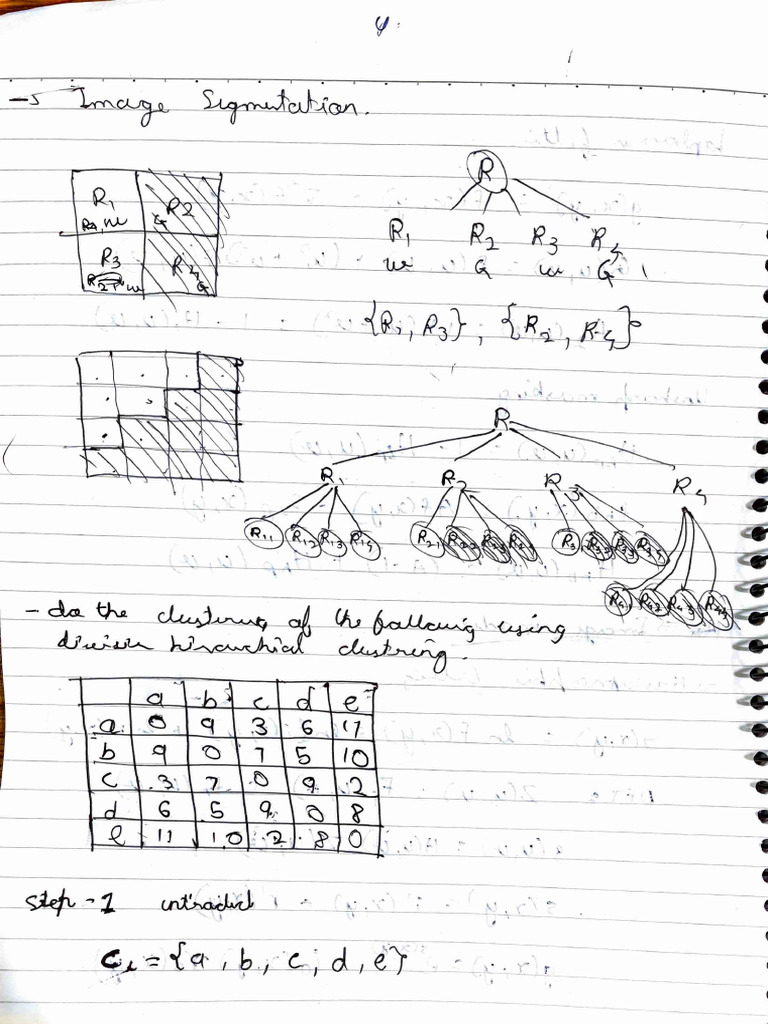 4.
→ Image Sigmutation.
R
R1 R2
R4, w G
R3 R4
w G
R1 R2 R3 R4
w G w G
{R1, R3}, {R2, R4}
R
R1 R2 R3 R4
R11 R12 R13 R14 R21 R22 R23 R24 R3 R32 R33 R34
R41 R42 R43 R44
- do the clustering of the following using
division hirarchial clustring.
a b c d e
a 0 9 3 6 11
b 9 0 7 5 10
c 3 7 0 9 2
d 6 5 9 0 8
e 11 10 2 8 0
step - 1
C1 = {a, b, c, d, e}